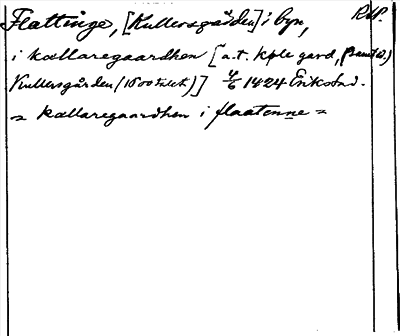 Flattinge, [Kullersgården] i byn, RAP.
i kællaregaardhen [a.t. kple gard, (samt id.)
Kullersgården (1600 talet)] 4/6 1424 Erikstad.
= kællaregaardhen i flaatenne =